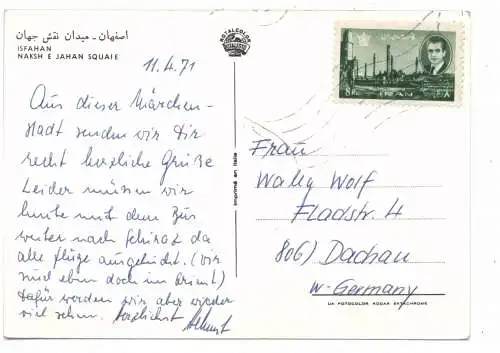 اصفهان - میدان نقش جهان
ISFAHAN
NAKSH E JAHAN SQUARE
ROTALCOLOR
11.4.71
Aus dieser Märchen-
stadt senden wir Dir
recht herzliche Grüße
Leider müssen wir
heute mit dem Bus
weiter nach Schiraz da
alle Flüge ausgebucht. (wir
sind eben doch im Orient)
Dafür werden wir aber wieder
viel sehen. Herzlichst Helmut
Imprimé en Italie
8R IRAN ۸
Frau
Wally Wolf
Fladstr. 4
806) Dachau
W-Germany
UA FOTOCOLOR KODAK EKTACHROME